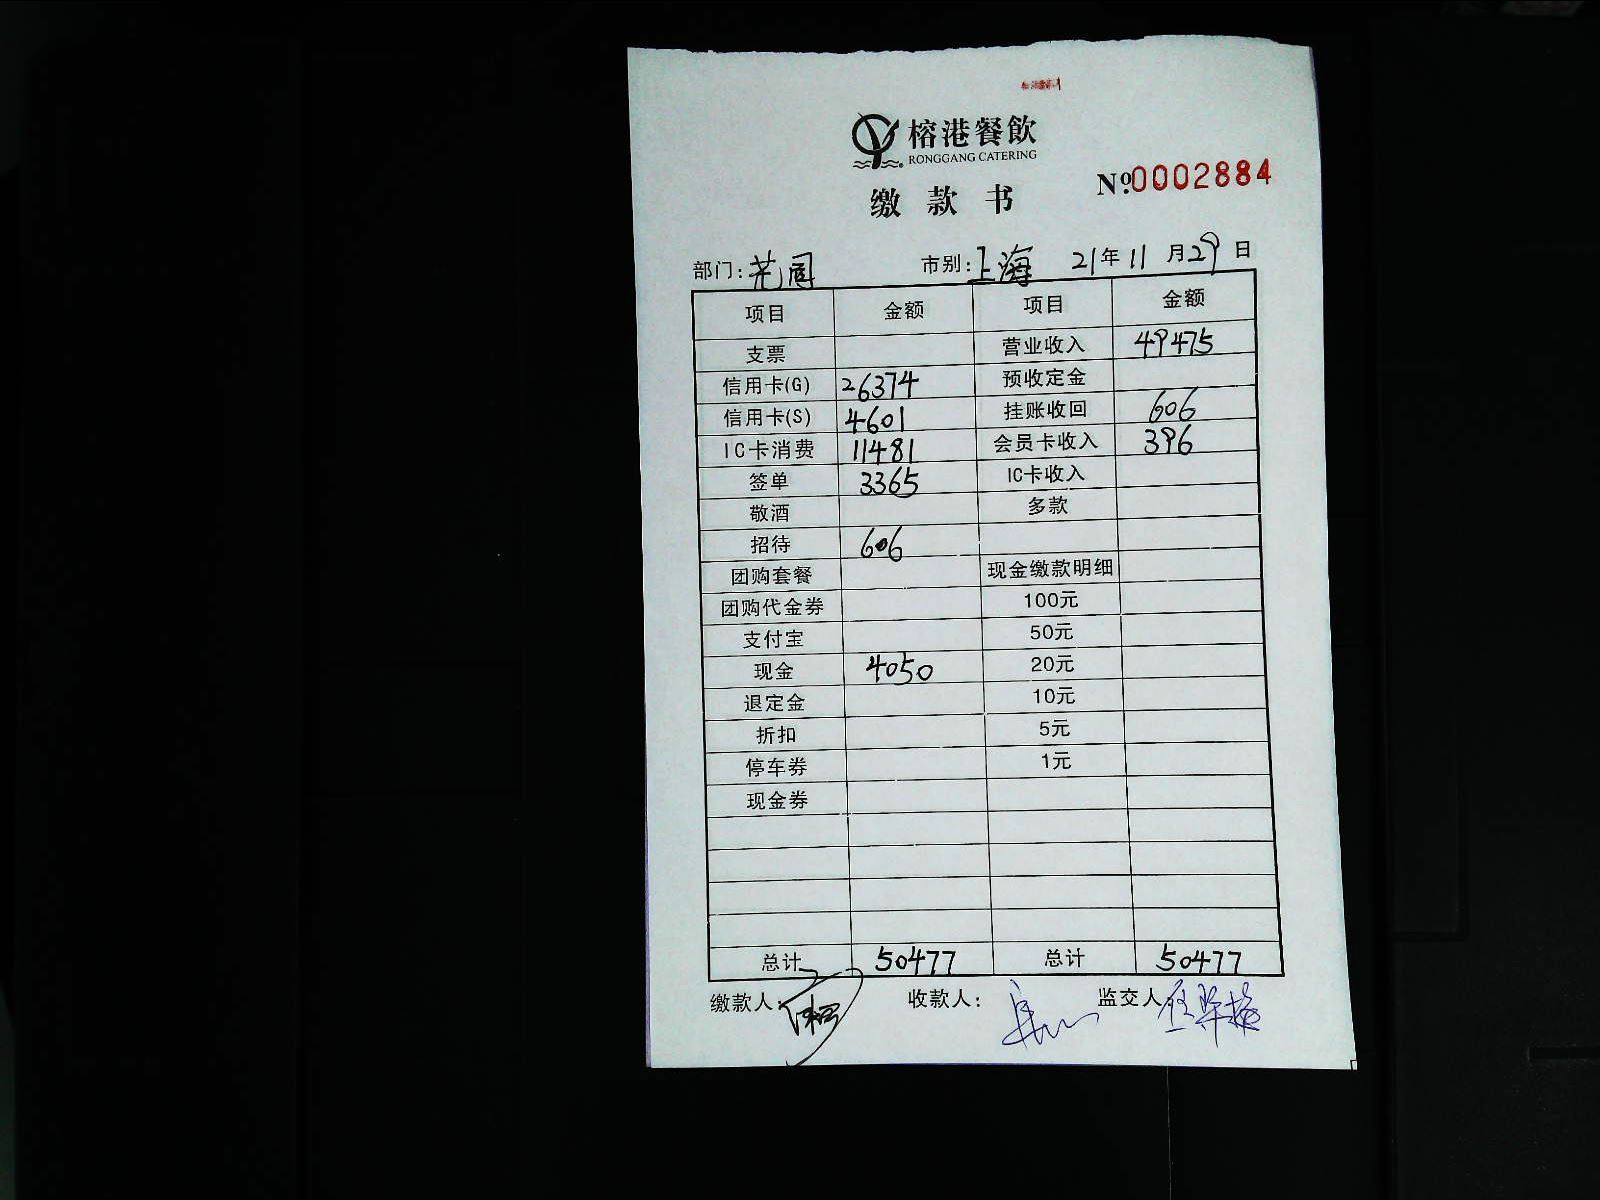 榕港餐飲
RONGGANG CATERING
缴款书
Nº.0002884
部门: 市别:上海 21年11月29日
项目 金额 项目 金额
支票 营业收入 49475
信用卡(G) 26374 预收定金
信用卡(S) 4601 挂账收回 606
IC卡消费 11481 会员卡收入 396
签单 3365 IC卡收入
敬酒 多款
招待 606
团购套餐 现金缴款明细
团购代金券 100元
支付宝 50元
现金 4050 20元
退定金 10元
折扣 5元
停车券 1元
现金券
总计 50477 总计 50477
缴款人: 收款人: 监交人: